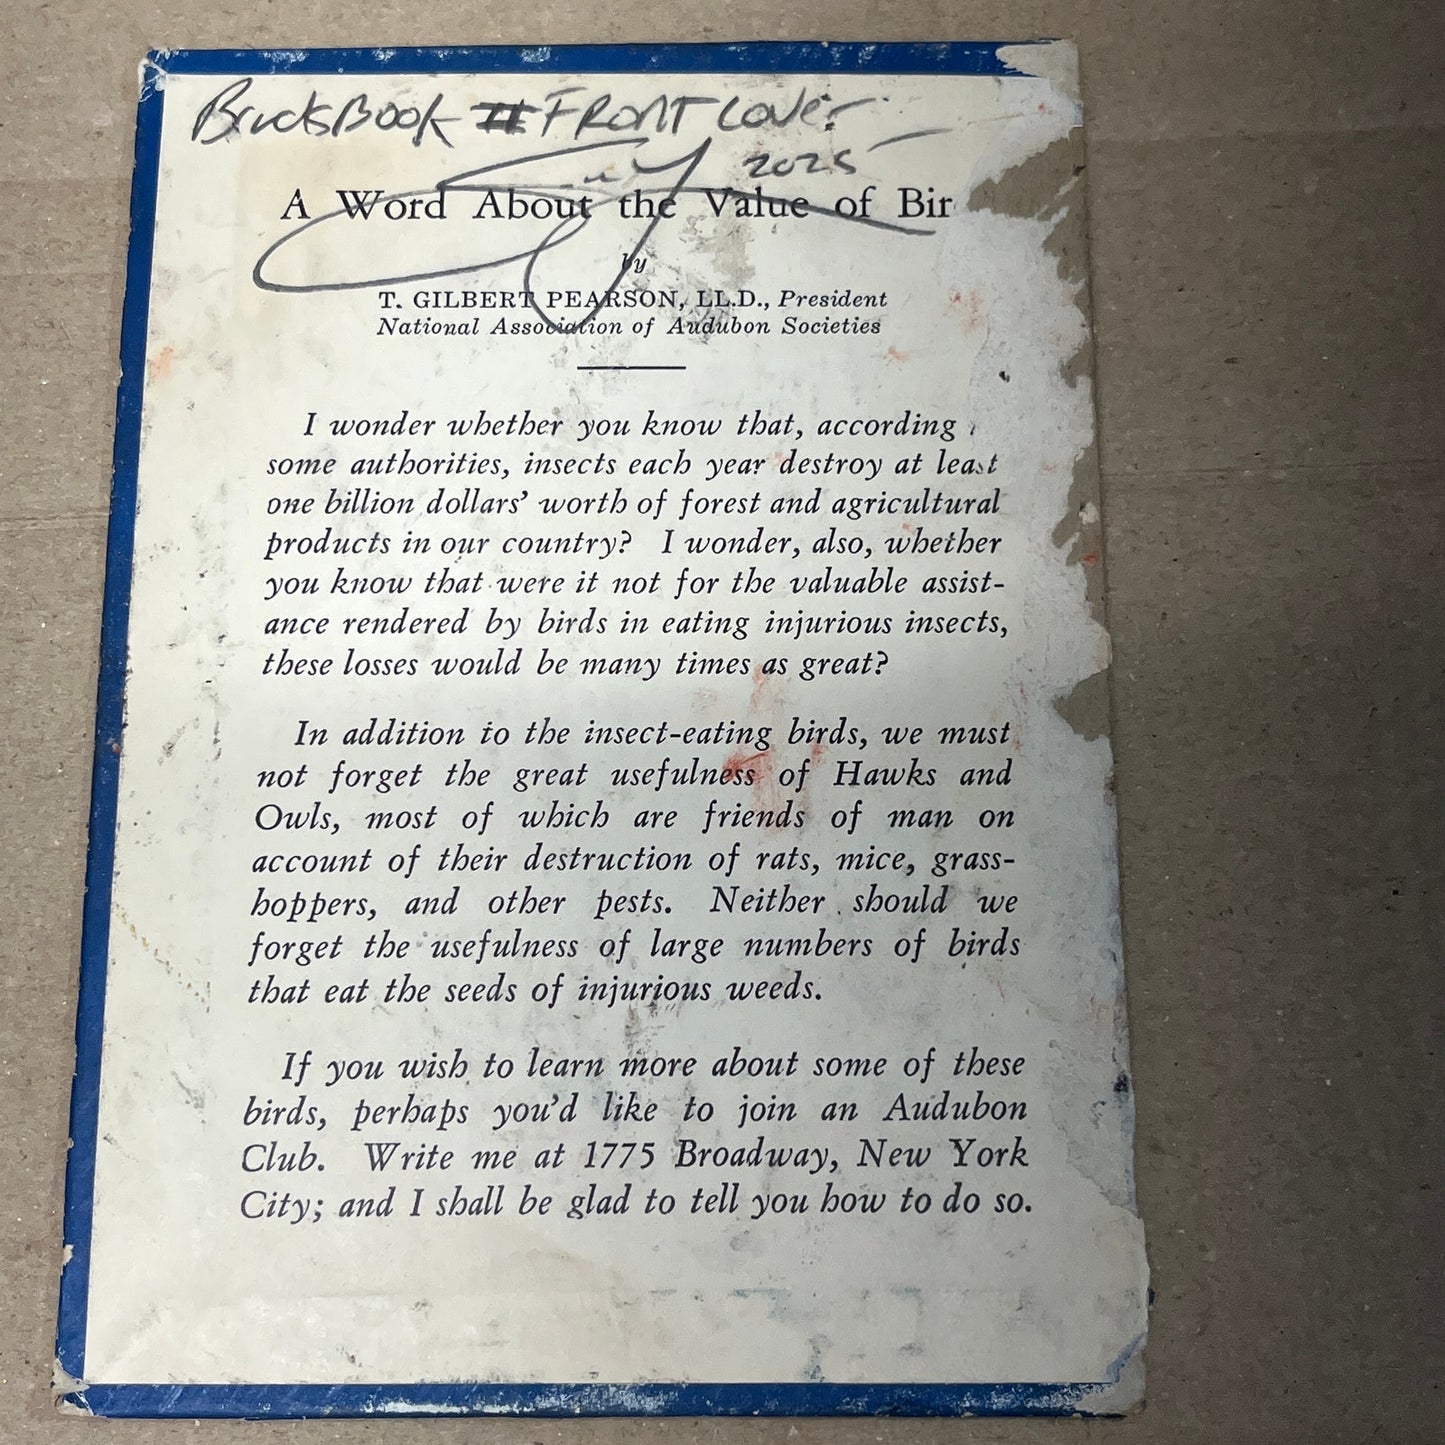 Book FRONT COVER
2025
A Word About the Value of Bir
by
T. GILBERT PEARSON, LL.D., President
National Association of Audubon Societies
I wonder whether you know that, according
some authorities, insects each year destroy at least
one billion dollars' worth of forest and agricultural
products in our country? I wonder, also, whether
you know that were it not for the valuable assist-
ance rendered by birds in eating injurious insects,
these losses would be many times as great?
In addition to the insect-eating birds, we must
not forget the great usefulness of Hawks and
Owls, most of which are friends of man on
account of their destruction of rats, mice, grass-
hoppers, and other pests. Neither should we
forget the usefulness of large numbers of birds
that eat the seeds of injurious weeds.
If you wish to learn more about some of these
birds, perhaps you'd like to join an Audubon
Club. Write me at 1775 Broadway, New York
City; and I shall be glad to tell you how to do so.